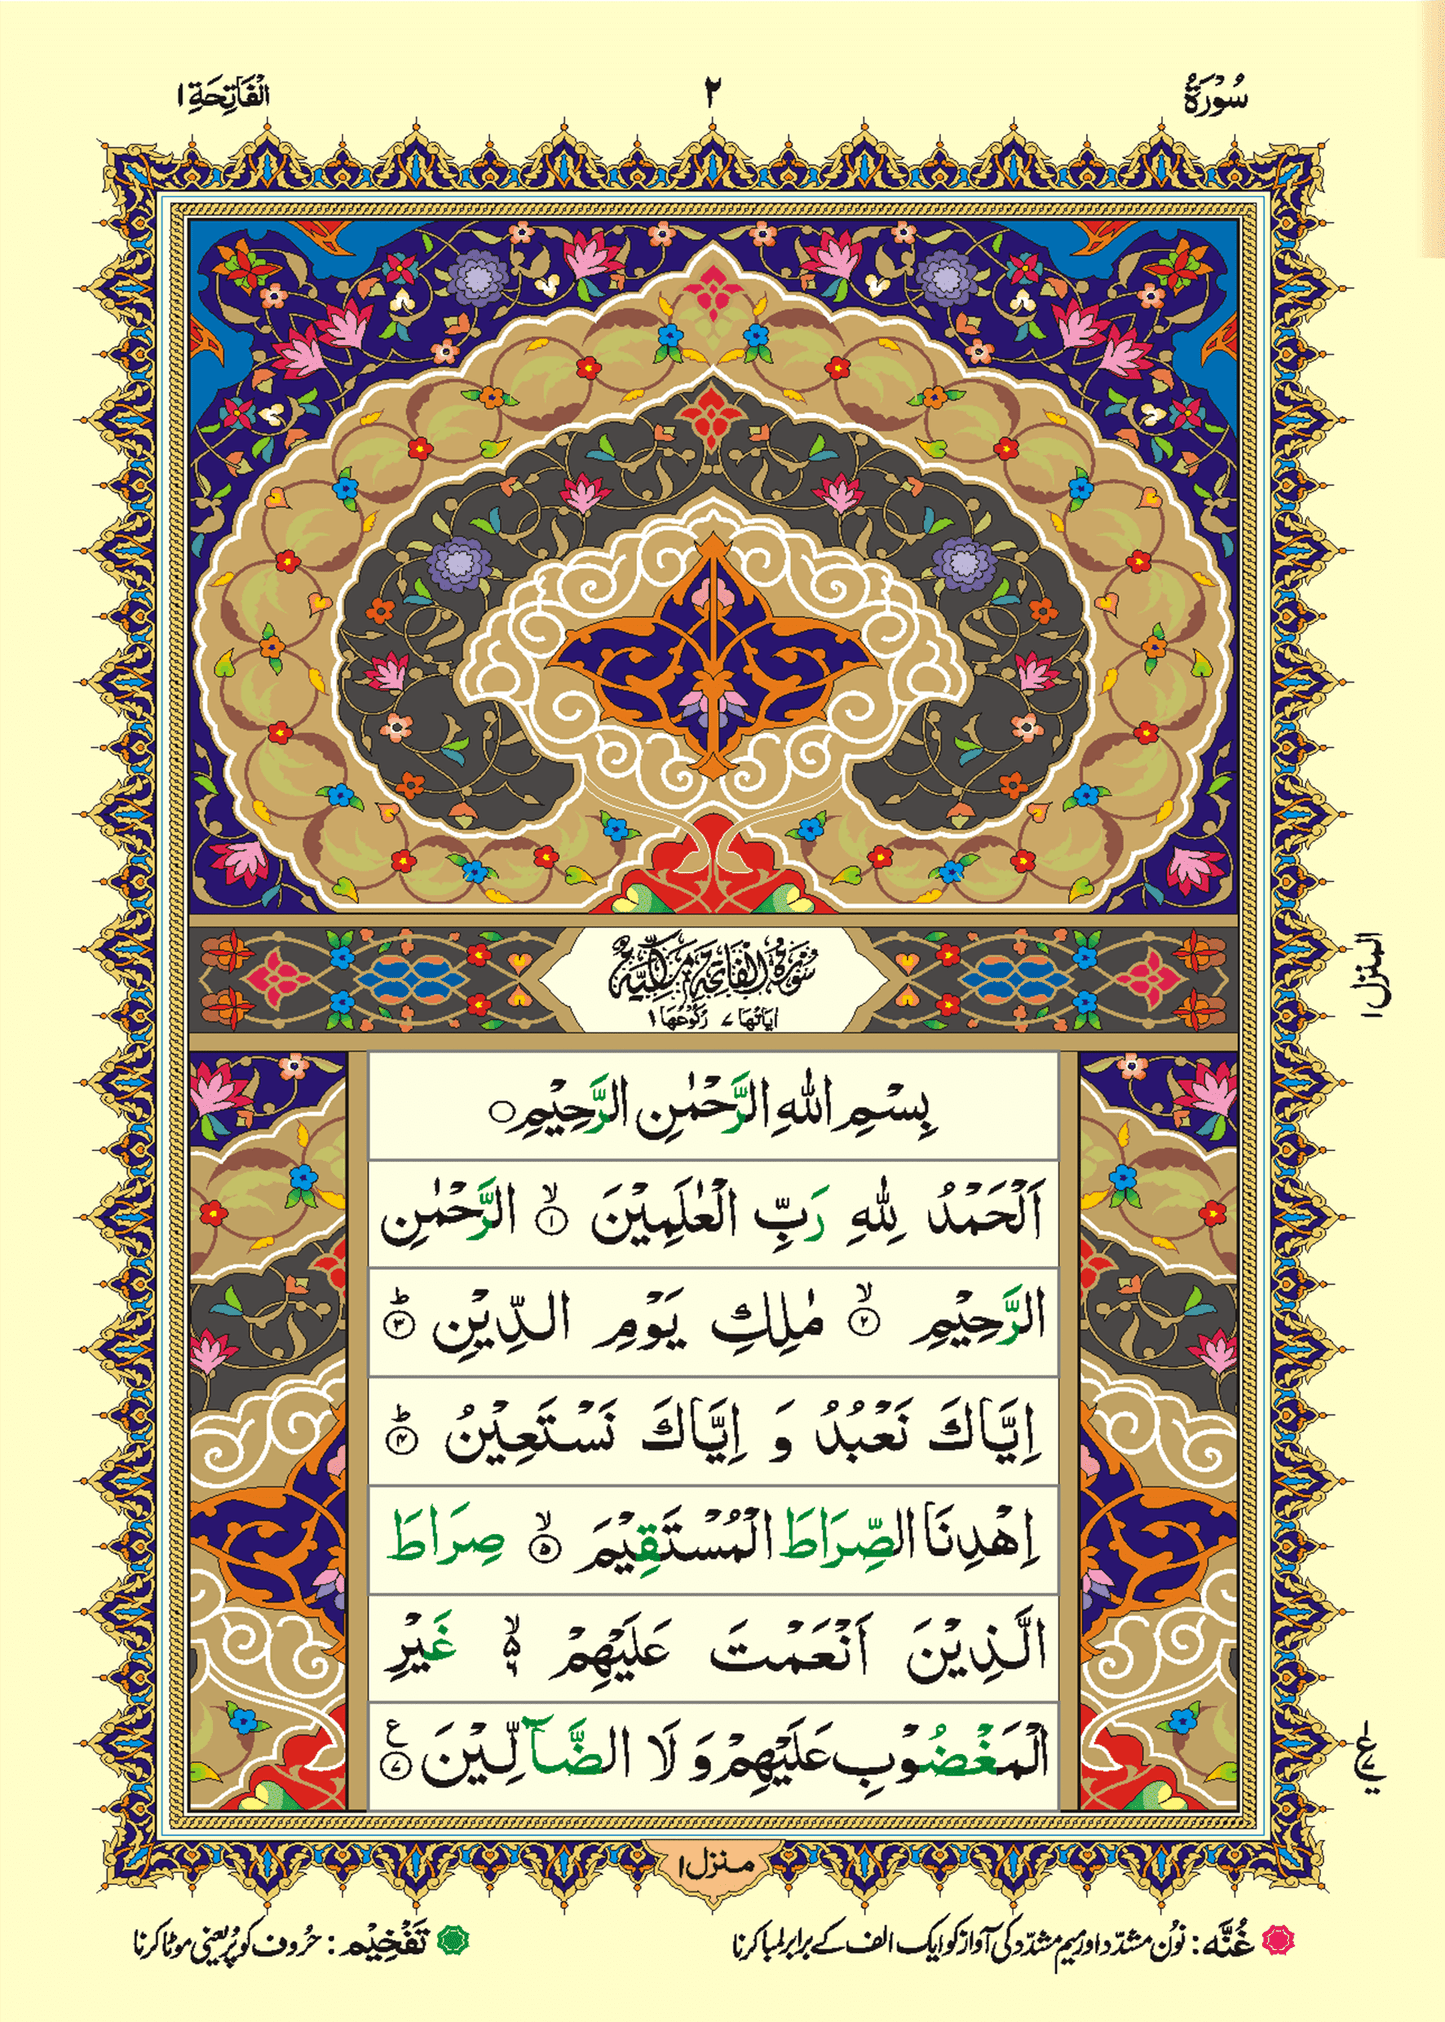 سُوۡرَةُ ٢ اَلۡفَاتِحَةِ ١
سُوۡرَةُ الۡفَاتِحَةِ مَكِّيَّةٌ
اٰيَاتُهَا ٧ رُكُوۡعُهَا ١
بِسۡمِ اللّٰهِ الرَّحۡمٰنِ الرَّحِيۡمِ ○
اَلۡحَمۡدُ لِلّٰهِ رَبِّ الۡعٰلَمِيۡنَ ۙ﴿۱﴾ الرَّحۡمٰنِ
الرَّحِيۡمِ ۙ﴿۲﴾ مٰلِكِ يَوۡمِ الدِّيۡنِ ؕ﴿۳﴾
اِيَّاكَ نَعۡبُدُ وَ اِيَّاكَ نَسۡتَعِيۡنُ ؕ﴿۴﴾
اِهۡدِنَا الصِّرَاطَ الۡمُسۡتَقِيۡمَ ۙ﴿۵﴾ صِرَاطَ
الَّذِيۡنَ اَنۡعَمۡتَ عَلَيۡهِمۡ ۙ۵ ۶ غَيۡرِ
الۡمَغۡضُوۡبِ عَلَيۡهِمۡ وَ لَا الضَّآلِّيۡنَ ﴿۷﴾ ع
المنزل ۱
ع
منزل ۱
غُنَّه: نُوۡن مشدّد اور میم مشدّد کی آواز کو ایک الف کے برابر لمبا کرنا
تَفۡخِیۡم: حُروف کو پُر یعنی موٹا کرنا